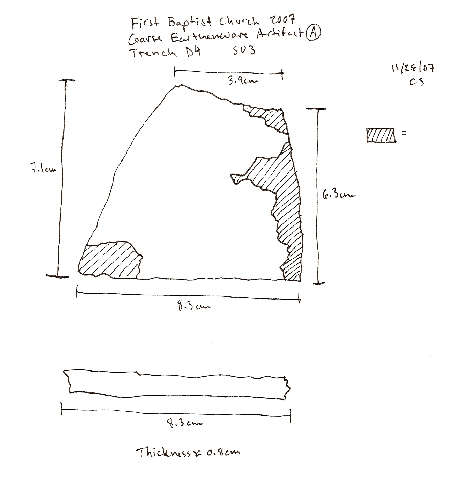 First Baptist Church 2007
Coarse Earthenware Artifact A
Trench D4 SU3
11/28/07
CS
3.9cm
=
7.1cm
6.3cm
8.3cm
8.3cm
Thickness ≈ 0.8cm